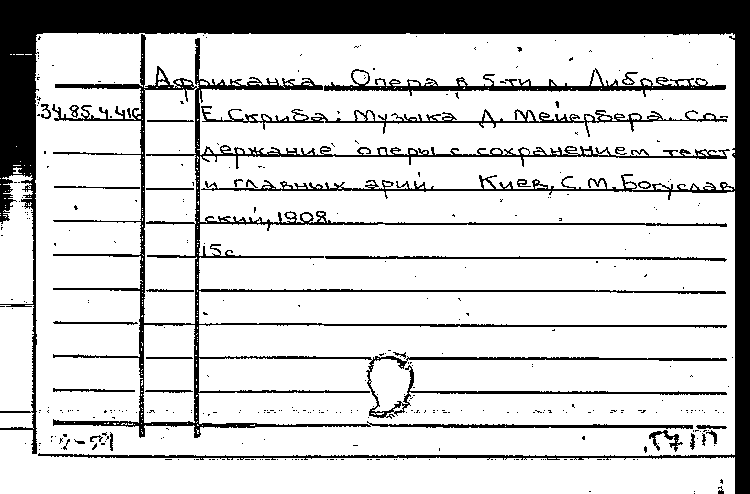 Африканка. Опера в 5-ти д. Либретто
34.85.4.416 Е. Скриба: Музыка Д. Мейербера. Со-
держание оперы с сохранением текста
и главных арий. Киев, С.М. Богуслав
ский, 1908.
15с.